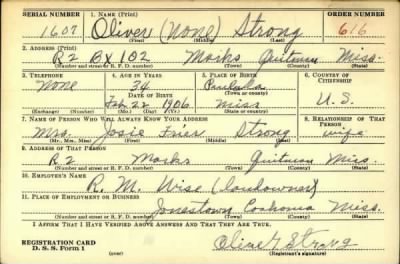 SERIAL NUMBER 1. NAME (Print) ORDER NUMBER
1607 Oliver (None) Strong 616
(First) (Middle) (Last)
2. ADDRESS (Print)
R2 BX 102 Marks Quitman Miss.
(Number and street or R. F. D. number) (Town) (County) (State)
3. TELEPHONE 4. AGE IN YEARS 5. PLACE OF BIRTH 6. COUNTRY OF CITIZENSHIP
None 34
DATE OF BIRTH (Town or county)
Feb. 22 1906 Miss U.S.
(Exchange) (Number) (Mo.) (Day) (Yr.) (State or country)
7. NAME OF PERSON WHO WILL ALWAYS KNOW YOUR ADDRESS 8. RELATIONSHIP OF THAT PERSON
Mrs. Josie Strong wife
(Mr., Mrs., Miss) (First) (Middle) (Last)
9. ADDRESS OF THAT PERSON
R2 Marks Quitman Miss.
(Number and street or R. F. D. number) (Town) (County) (State)
10. EMPLOYER'S NAME
R. M. Wise (Landowner)
11. PLACE OF EMPLOYMENT OR BUSINESS
Jonestown Coahoma Miss.
(Number and street or R. F. D. number) (Town) (County) (State)
I AFFIRM THAT I HAVE VERIFIED ABOVE ANSWERS AND THAT THEY ARE TRUE.
REGISTRATION CARD
D. S. S. Form 1 (over) Oliver Strong
(Registrant's signature)